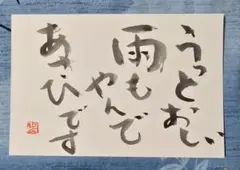 うっとおしい
雨もやんで
あさひです